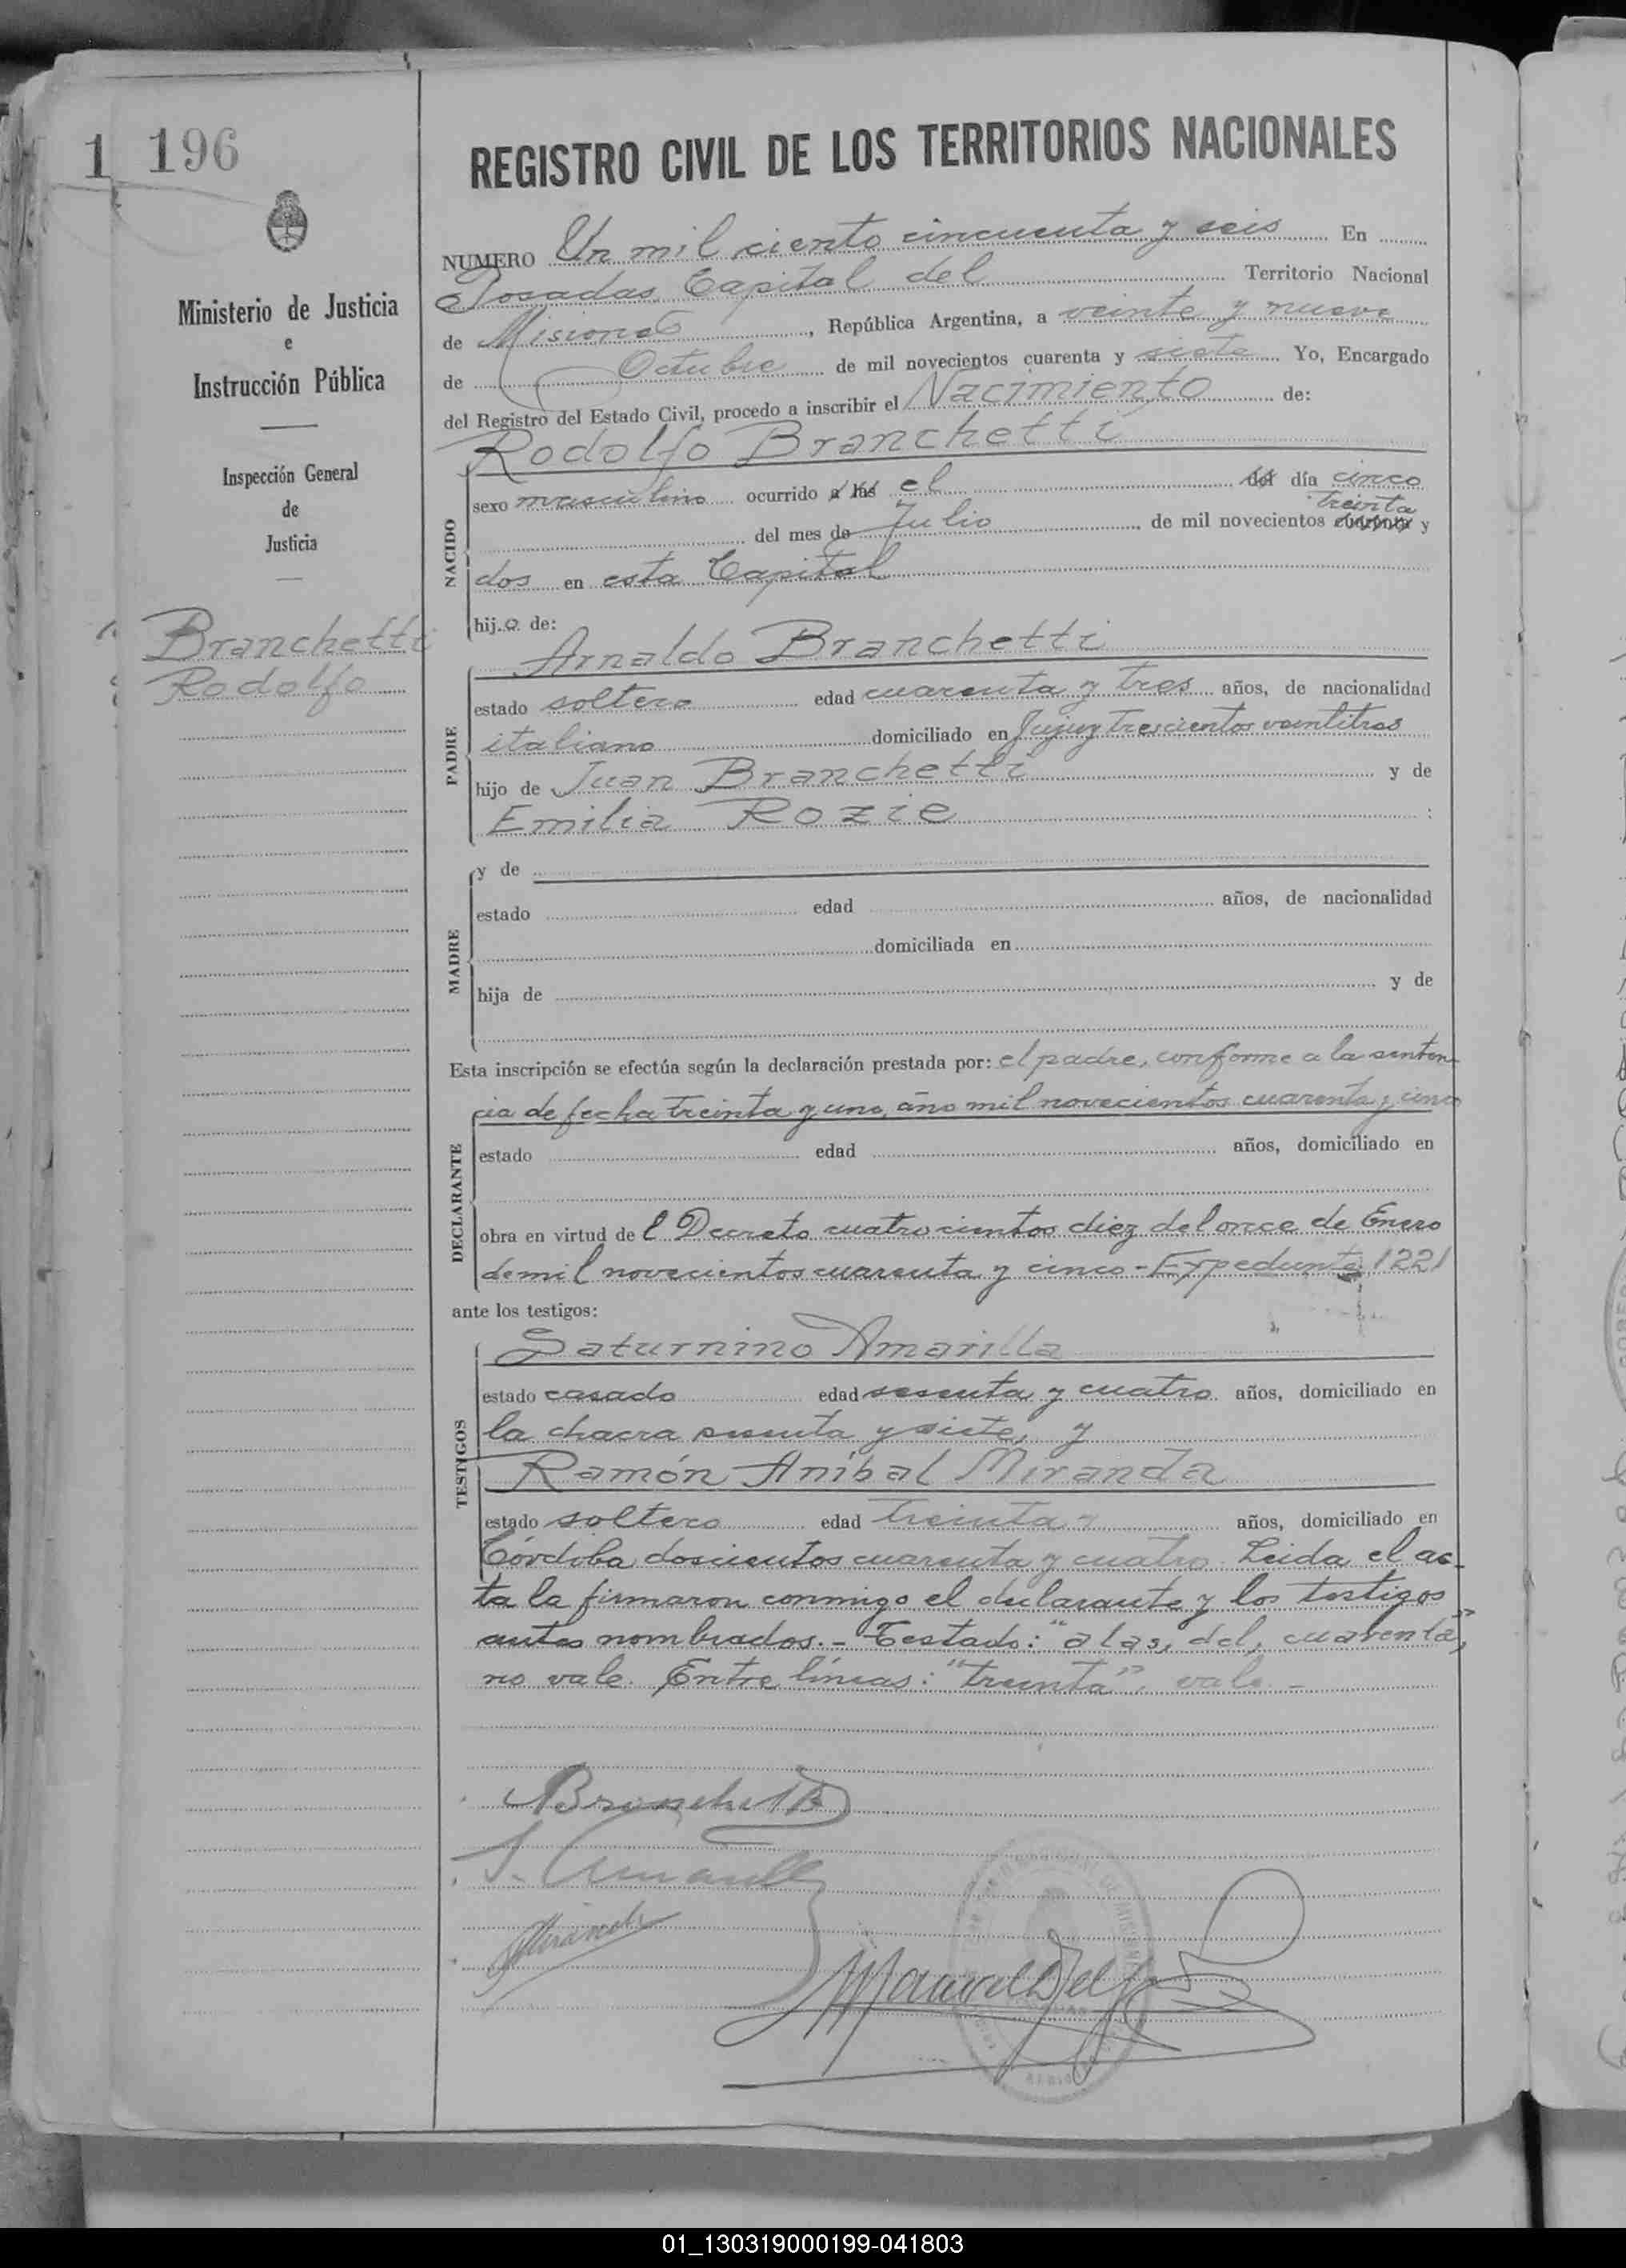 1 196
REGISTRO CIVIL DE LOS TERRITORIOS NACIONALES
NUMERO Un mil ciento cincuenta y seis En
Posadas Capital del Territorio Nacional
de Misiones, República Argentina, a veinte y nueve
de Octubre de mil novecientos cuarenta y siete Yo, Encargado
del Registro del Estado Civil, procedo a inscribir el Nacimiento de:
Rodolfo Branchetti
Ministerio de Justicia
e
Instrucción Pública
Inspección General
de
Justicia
Branchetti
Rodolfo
NACIDO
sexo masculino ocurrido a las el del día cinco
treinta
del mes de Julio de mil novecientos cuarenta y
dos en esta Capital
hij.o de:
PADRE
Arnaldo Branchetti
estado soltero edad cuarenta y tres años, de nacionalidad
italiano domiciliado en Jujuy trescientos veintitres
hijo de Juan Branchetti y de
Emilia Rozie :
MADRE
y de
estado edad años, de nacionalidad
domiciliada en
hija de y de
Esta inscripción se efectúa según la declaración prestada por: el padre, conforme a la senten
cia de fecha treinta y uno, año mil novecientos cuarenta y cinco
DECLARANTE
estado edad años, domiciliado en
obra en virtud de l Decreto cuatrocientos diez del once de Enero
de mil novecientos cuarenta y cinco - Expediente 1221
ante los testigos:
TESTIGOS
Saturnino Amarilla
estado casado edad sesenta y cuatro años, domiciliado en
la chacra sesenta y siete, y
Ramón Aníbal Miranda
estado soltero edad treinta años, domiciliado en
Córdoba doscientos cuarenta y cuatro. Leida el ac-
ta la firmaron conmigo el declarante y los testigos
antes nombrados.- Testado: "a las, del, cuarenta",
no vale. Entre líneas: "treinta", vale.-
ABranchetti
S. Amarilla
Miranda
01_130319000199-041803